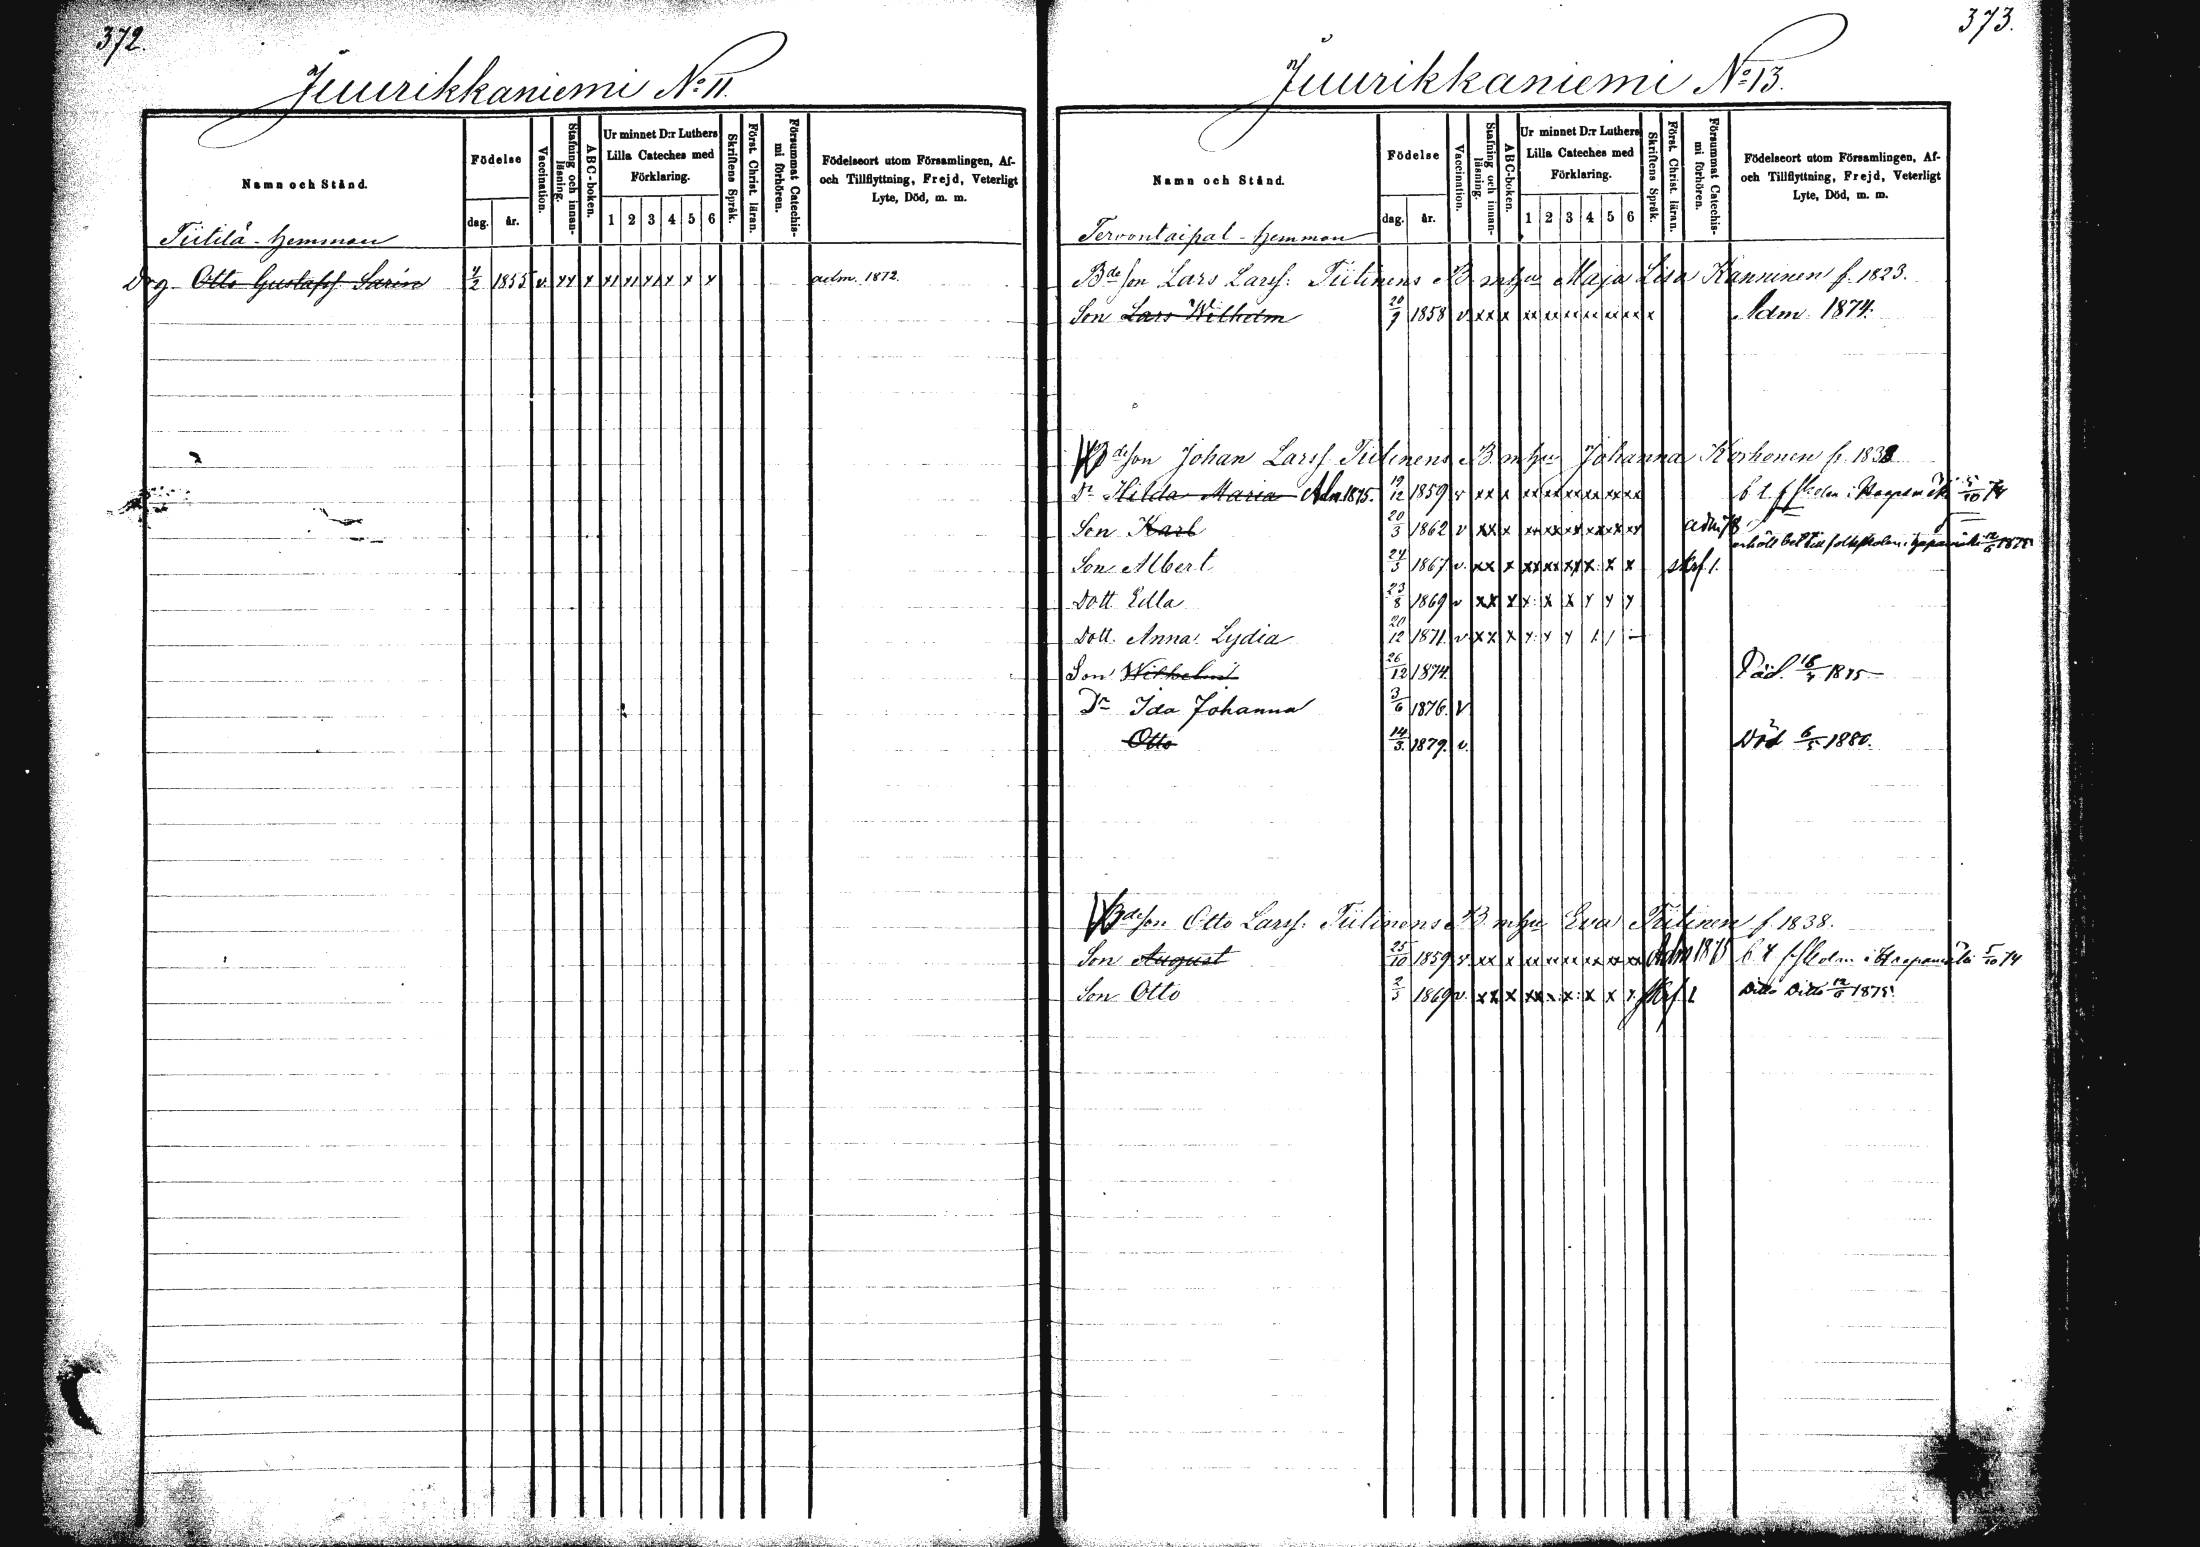 372.
Juurikkaniemi No 11.
Namn och Stånd.
Födelse
dag. år.
Vaccination.
Stafning och innan-läsning.
ABC-boken.
Ur minnet D:r Luthers Lilla Cateches med Förklaring.
1 2 3 4 5 6
Skriftens Språk.
Först. Christ. läran.
Försummat Catechis-mi förhören.
Födelseort utom Församlingen, Af- och Tillflyttning, Frejd, Veterligt Lyte, Död, m. m.
Tiitilä - hemman
Drg Otto Gustafsf. Sarin 4/2 1855 v. xx x x1 x1 x1 x x x adm. 1872.
373.
Juurikkaniemi No 13.
Namn och Stånd.
Födelse
dag. år.
Vaccination.
Stafning och innan-läsning.
ABC-boken.
Ur minnet D:r Luthers Lilla Cateches med Förklaring.
1 2 3 4 5 6
Skriftens Språk.
Först. Christ. läran.
Försummat Catechis-mi förhören.
Födelseort utom Församlingen, Af- och Tillflyttning, Frejd, Veterligt Lyte, Död, m. m.
Tervontaipal - hemman
Bdeson Lars Larsf: Tiitinens B. m hu Maja Lisa Kannunen f. 1823.
Son Lars Wilhelm 20/9 1858 v. xx x xx xx xx xx xx xx x Adm. 1874.
Bdeson Johan Larsf Tiitinens B. m hu Johanna Korhonen f. 1838
Dr Hilda Maria Adm 1875. 19/12 1859 v xx x xx xx xx xx xx xx b. t. f skolan i Haapamäki 5/10 74
Son Karl 20/3 1862 v xx x xx xx xx xx xx xx adm 78
erhöll bet till folkskolan i Hapamäki 12/6 1875
Son Albert 24/3 1867 v. xx x xx xx xx x x x skrf 1.
Dott Edla 23/8 1869 v xx x x x x x x x
Dott. Anna Lydia 20/12 1871. v. xx x x x x 1 1 -
Son Wilhelm 26/12 1874. Död. 18/4 1875
Dr Ida Johanna 3/6 1876. v
Otto 14/3. 1879. v. Död 6/5 1880.
Bdeson Otto Larsf. Tiitinens B. m hu Eva Tiitinen f. 1838.
Son August 25/10 1859 v. xx x xx xx xx xx xx xx Adm 1875 b t f skolan i Haapamäki 5/10 74
Son Otto 2/3 1869 v. xx x xx x. x. x x x. skrf 1 Ditto Ditto 12/6 1875.